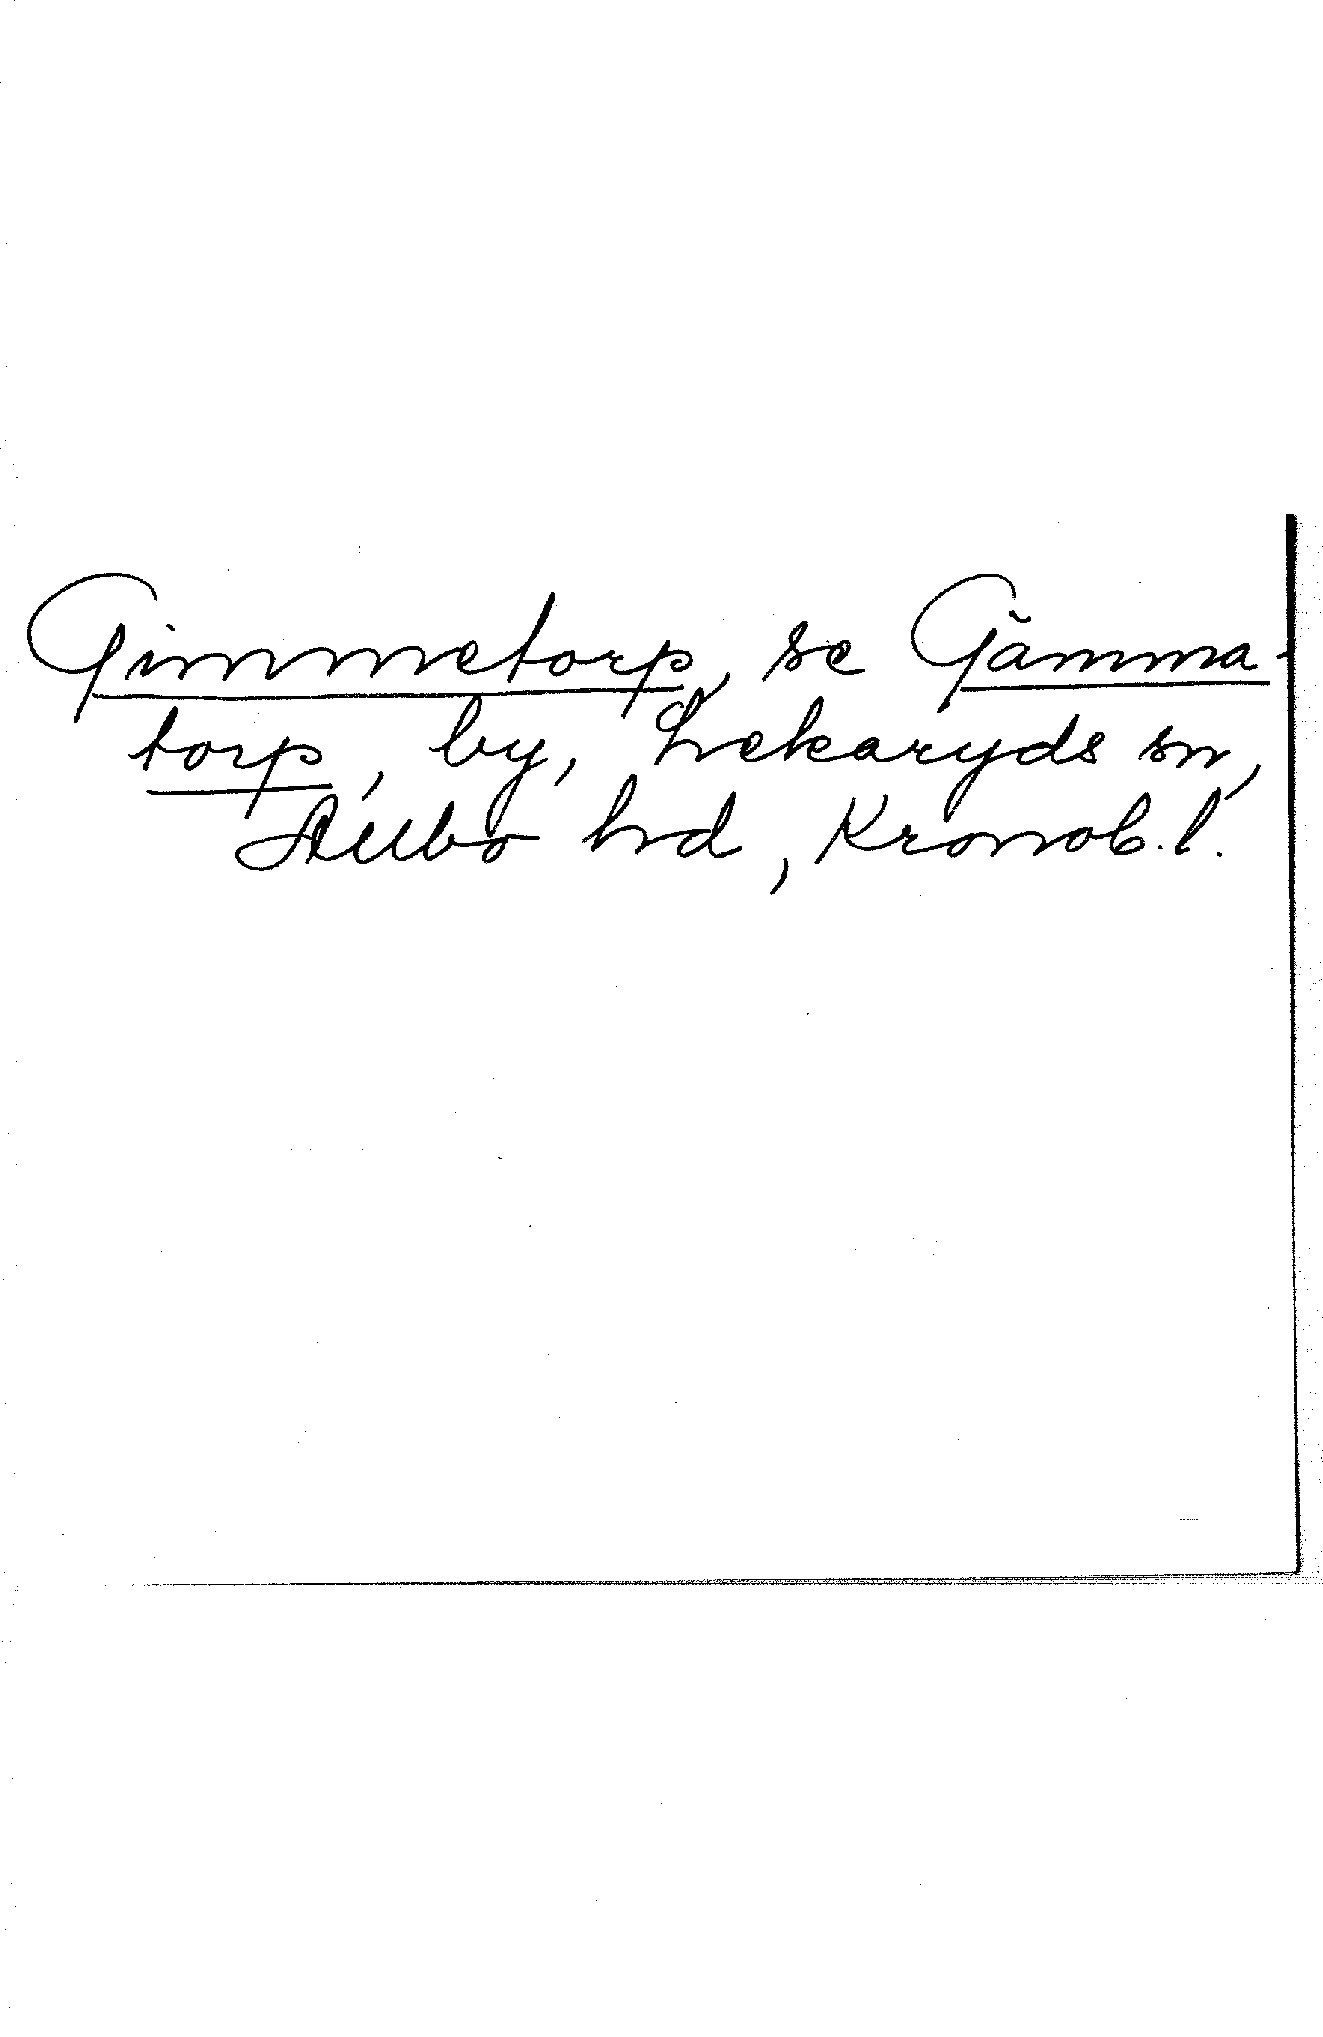 Gimmetorp, se Gämma-
torp, by, Hekaryds sn,
Allbo hd, Kronob. l.